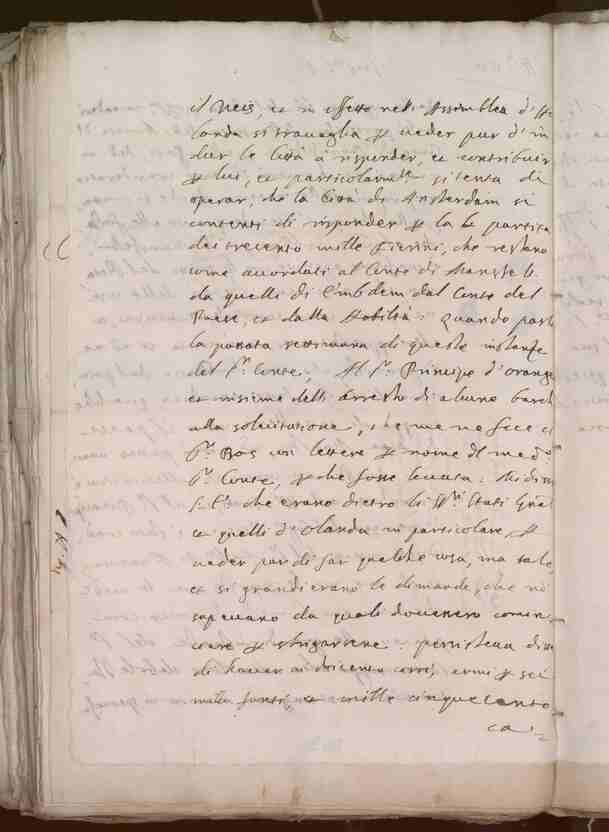 il Neis, et in effetto nell Assemblea d'Ho
landa si travaglia p veder pur d'in
dur le Città a risponder, et contribuir
p lui, et particolarmte si tenta di
operar, che la Città di Amsterdam si
contenti di risponder p la partita
dei trecento mille Fiorini, che restano
come accordati al Conte di Mansfelt
da quelli di Embdem dal Conte del
Paese, et dalla Nobiltà. Quando parlò
la passata settimana di queste instanze
del Sr Conte, Al Sr Principe d'orange
et insieme dell arresto di alcune barche
alla solicitatione, che me ne fece il
Sr con lettere p nome del medmo
Sr Conte, p che fosse levata. Mi disse
S. E. che erano dietro li SSri Stati Gnāli
et quelli d'Olanda in particolare p
veder pur di far qualche cosa, ma tale,
et si grandi erano le dimande, che nō
sapevano da quali dovessero comin
ciare p sbrigarsene. persisteva disse
di haver ai doicento corsi, armi p sei
mille fanti, et mille cinquecento
ca: